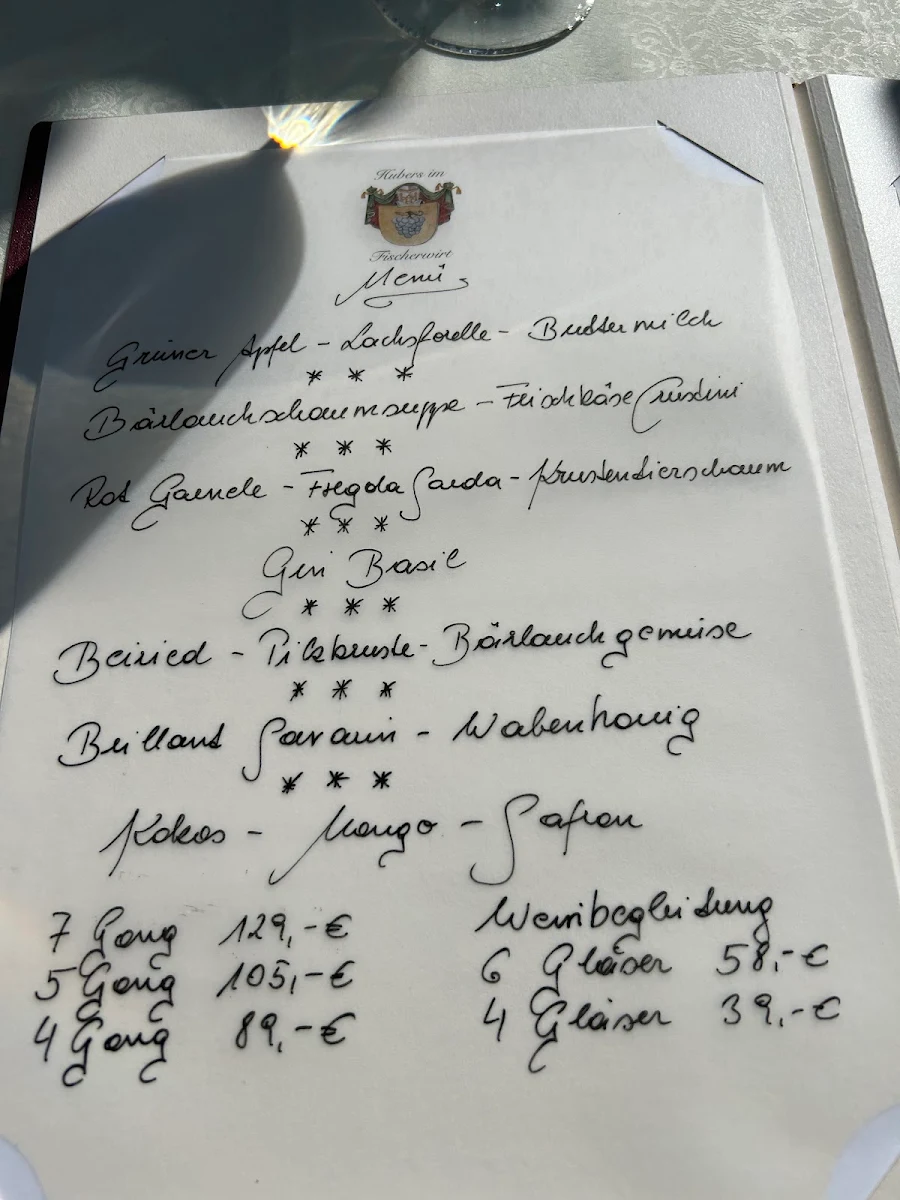 Hubers im
Fischerwirt
Menü
Grüner Apfel - Lachsforelle - Buttermilch
* * *
Bärlauchschaumsuppe - Frischkäse Crustini
* * *
Rot Garnele - Fregola Sarda - Krustentierschaum
* * *
Gin Basil
* * *
Beiried - Pilzkruste - Bärlauchgemüse
* * *
Brillant Savarin - Wabenhonig
* * *
Kokos - Mango - Safran
7 Gang 129,-€
5 Gang 105,-€
4 Gang 89,-€
Weinbegleitung
6 Gläser 58,-€
4 Gläser 39,-€